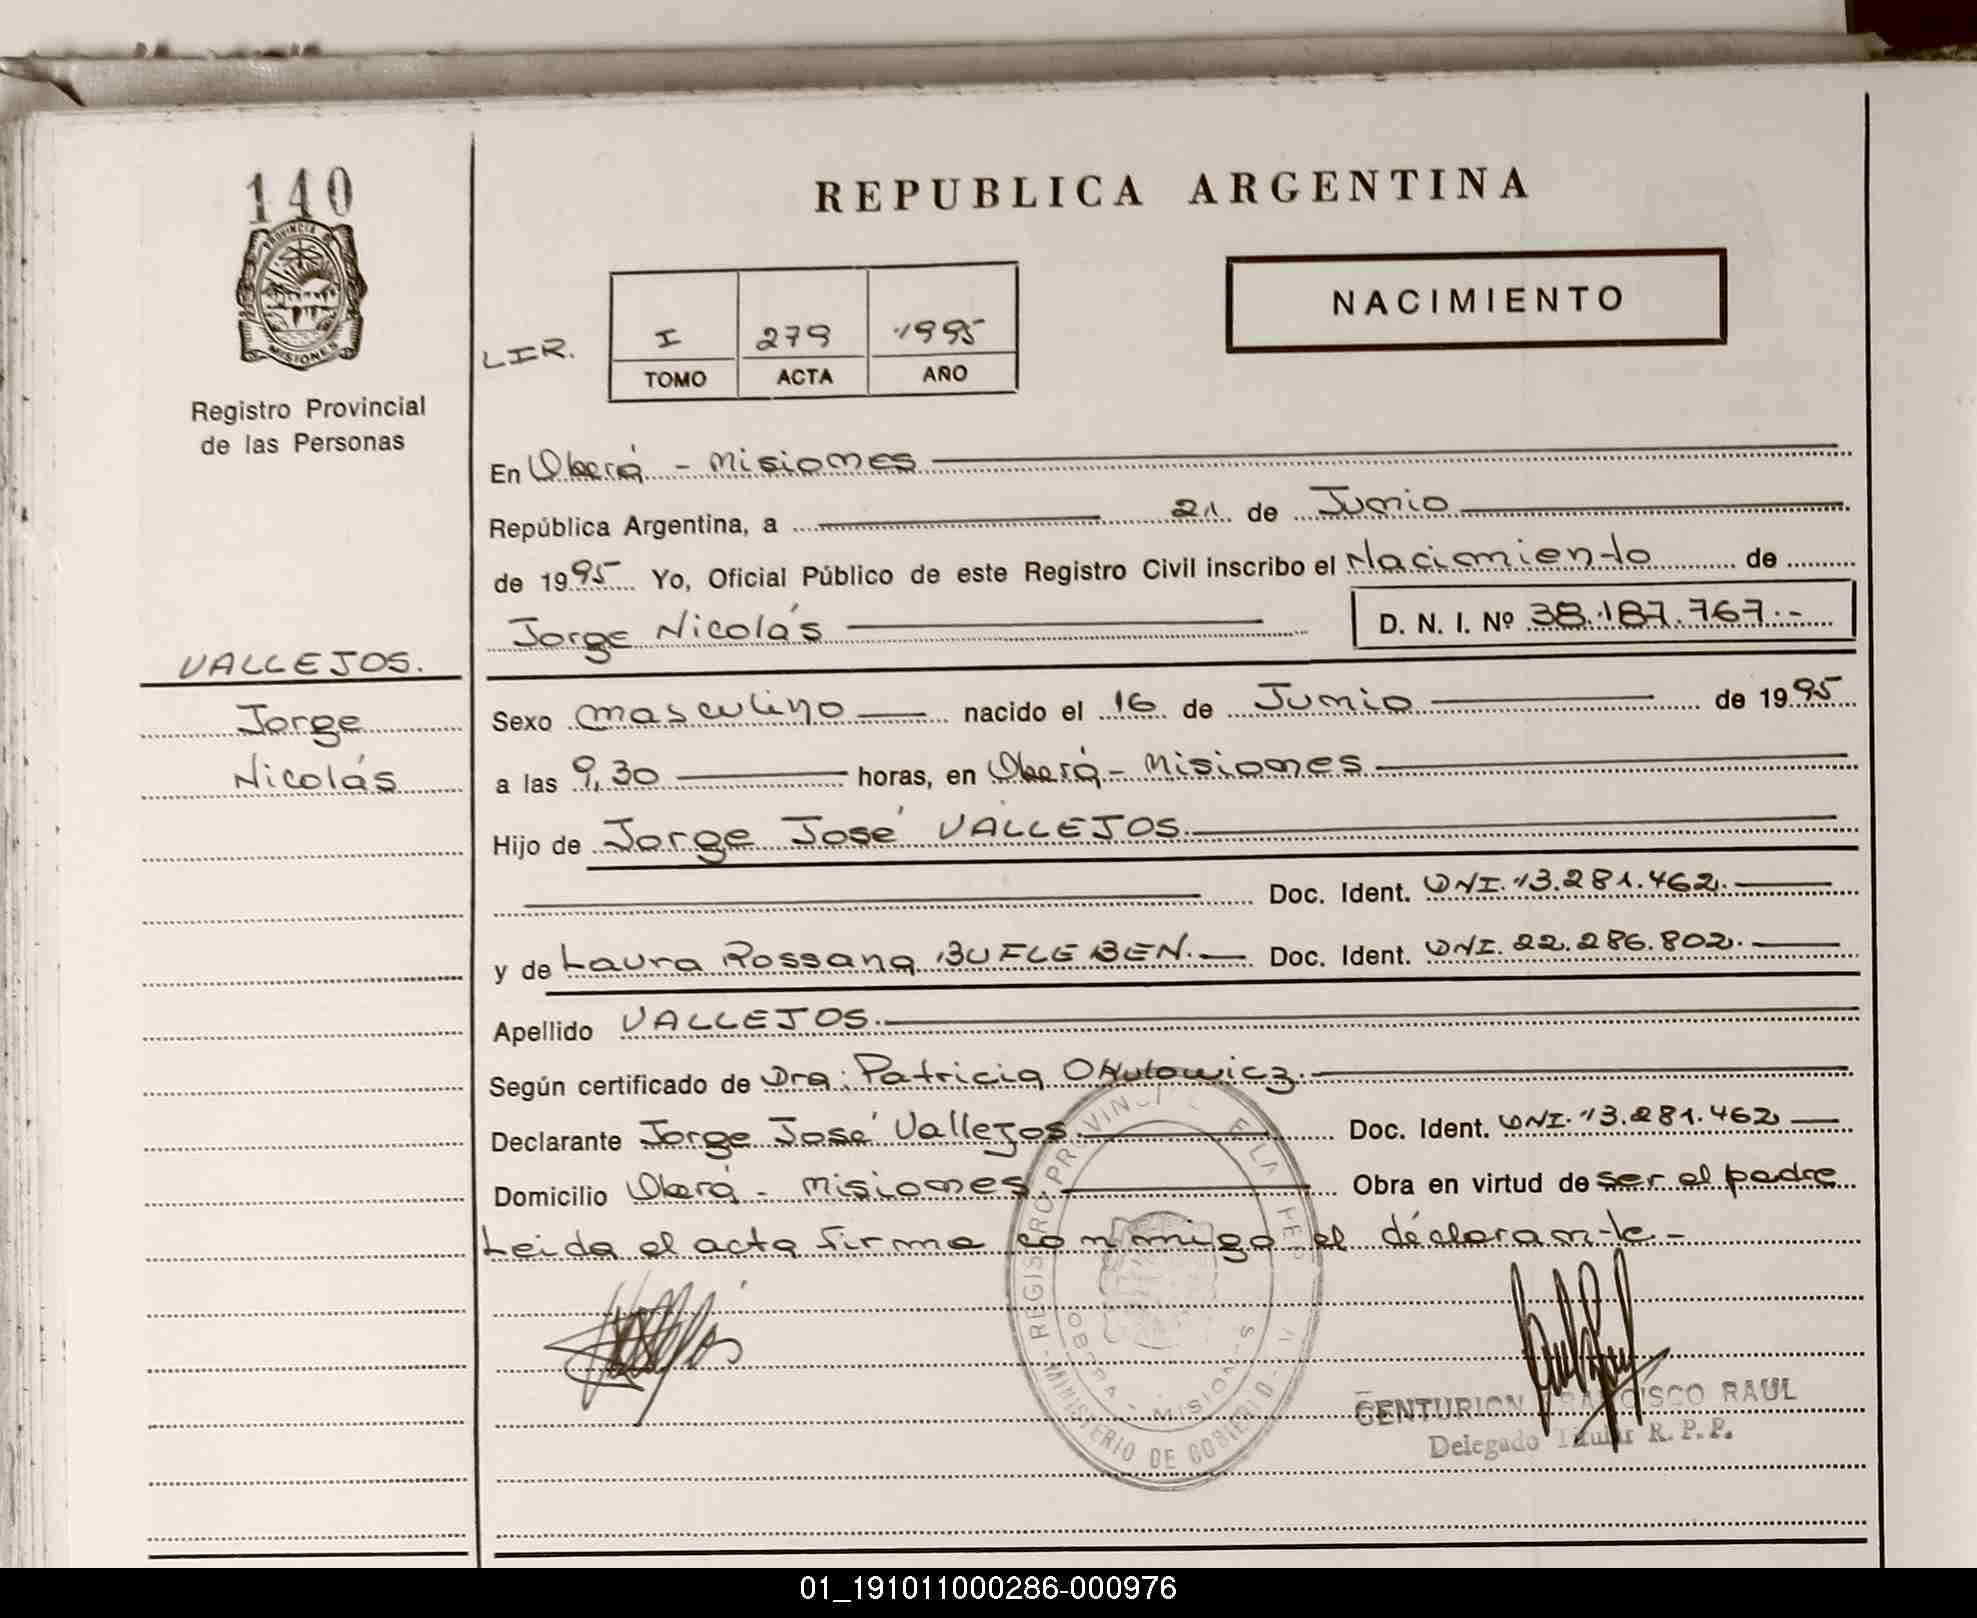 140
PROVINCIA DE
MISIONES
Registro Provincial
de las Personas
VALLEJOS.
Jorge
Nicolás
REPUBLICA ARGENTINA
NACIMIENTO
LIR.
I 279 1995
TOMO ACTA AÑO
En Oberá - Misiones
República Argentina, a 21 de Junio
de 1995 Yo, Oficial Público de este Registro Civil inscribo el Nacimiento de
Jorge Nicolás D. N. I. Nº 38.187.767.-
Sexo masculino nacido el 16 de Junio de 1995
a las 9,30 horas, en Oberá - Misiones
Hijo de Jorge José VALLEJOS.
Doc. Ident. DNI. 13.281.462.
y de Laura Rossana BUFLEBEN. Doc. Ident. DNI. 22.286.802.
Apellido VALLEJOS.
Según certificado de Dra. Patricia Okulowicz.
Declarante Jorge José Vallejos. Doc. Ident. DNI. 13.281.462
Domicilio Oberá - Misiones. Obra en virtud de ser el padre
Leida el acta firma conmigo el declarante.-
REGISTRO PROVINCIAL DE LA
OBERA - MISIONES
MINISTERIO DE GOBIERNO
CENTURION FRANCISCO RAUL
Delegado Titular R. P. P.
01_191011000286-000976